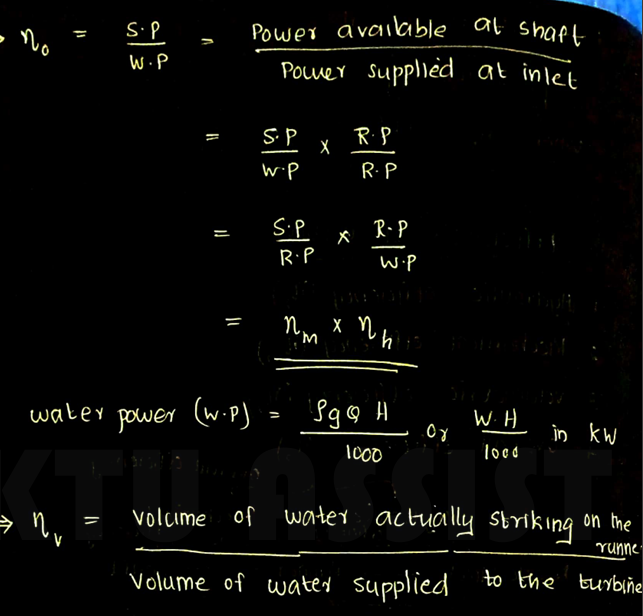 η₀ = S.P / W.P = Power available at shaft / Power supplied at inlet
= S.P / W.P × R.P / R.P
= S.P / R.P × R.P / W.P
= ηm × ηh
water power (W.P) = ρgQH / 1000 or W.H / 1000 in kW
⇒ ηv = volume of water actually striking on the runne / Volume of water supplied to the turbine
KTU ASSIST